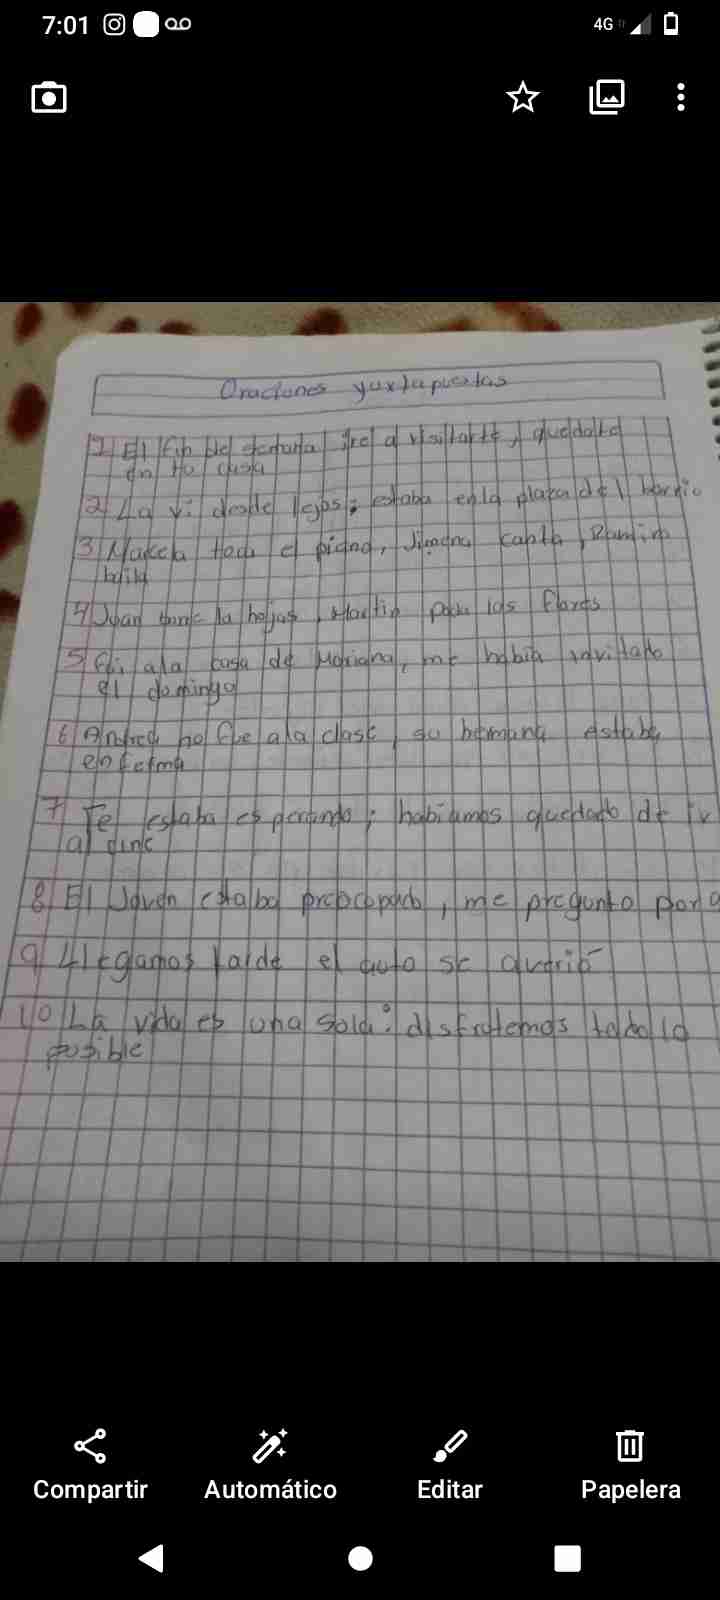 7:01
4G
Oraciones yuxtapuestas
1 El fin de semana iré a visitarte, quedate
en tu casa
2 La vi desde lejos; estaba enla plaza del barrio
3 Marcela toca el piano, Jimena canta, Ramiro
baila
4 Juan la hojas, Martin poda las flores
5 Fui ala casa de Mariana, me había invitado
el domingo
6 Andrea no fue ala clase, su hermana estaba
enferma
7 Te estaba esperando; habiamos quedado de ir
al cine
8 El Joven estaba preocopado, me pregunto por
9 Llegamos tarde el auto se averió
10 La vida es una sola: disfrutemos todo lo
posible
Compartir
Automático
Editar
Papelera